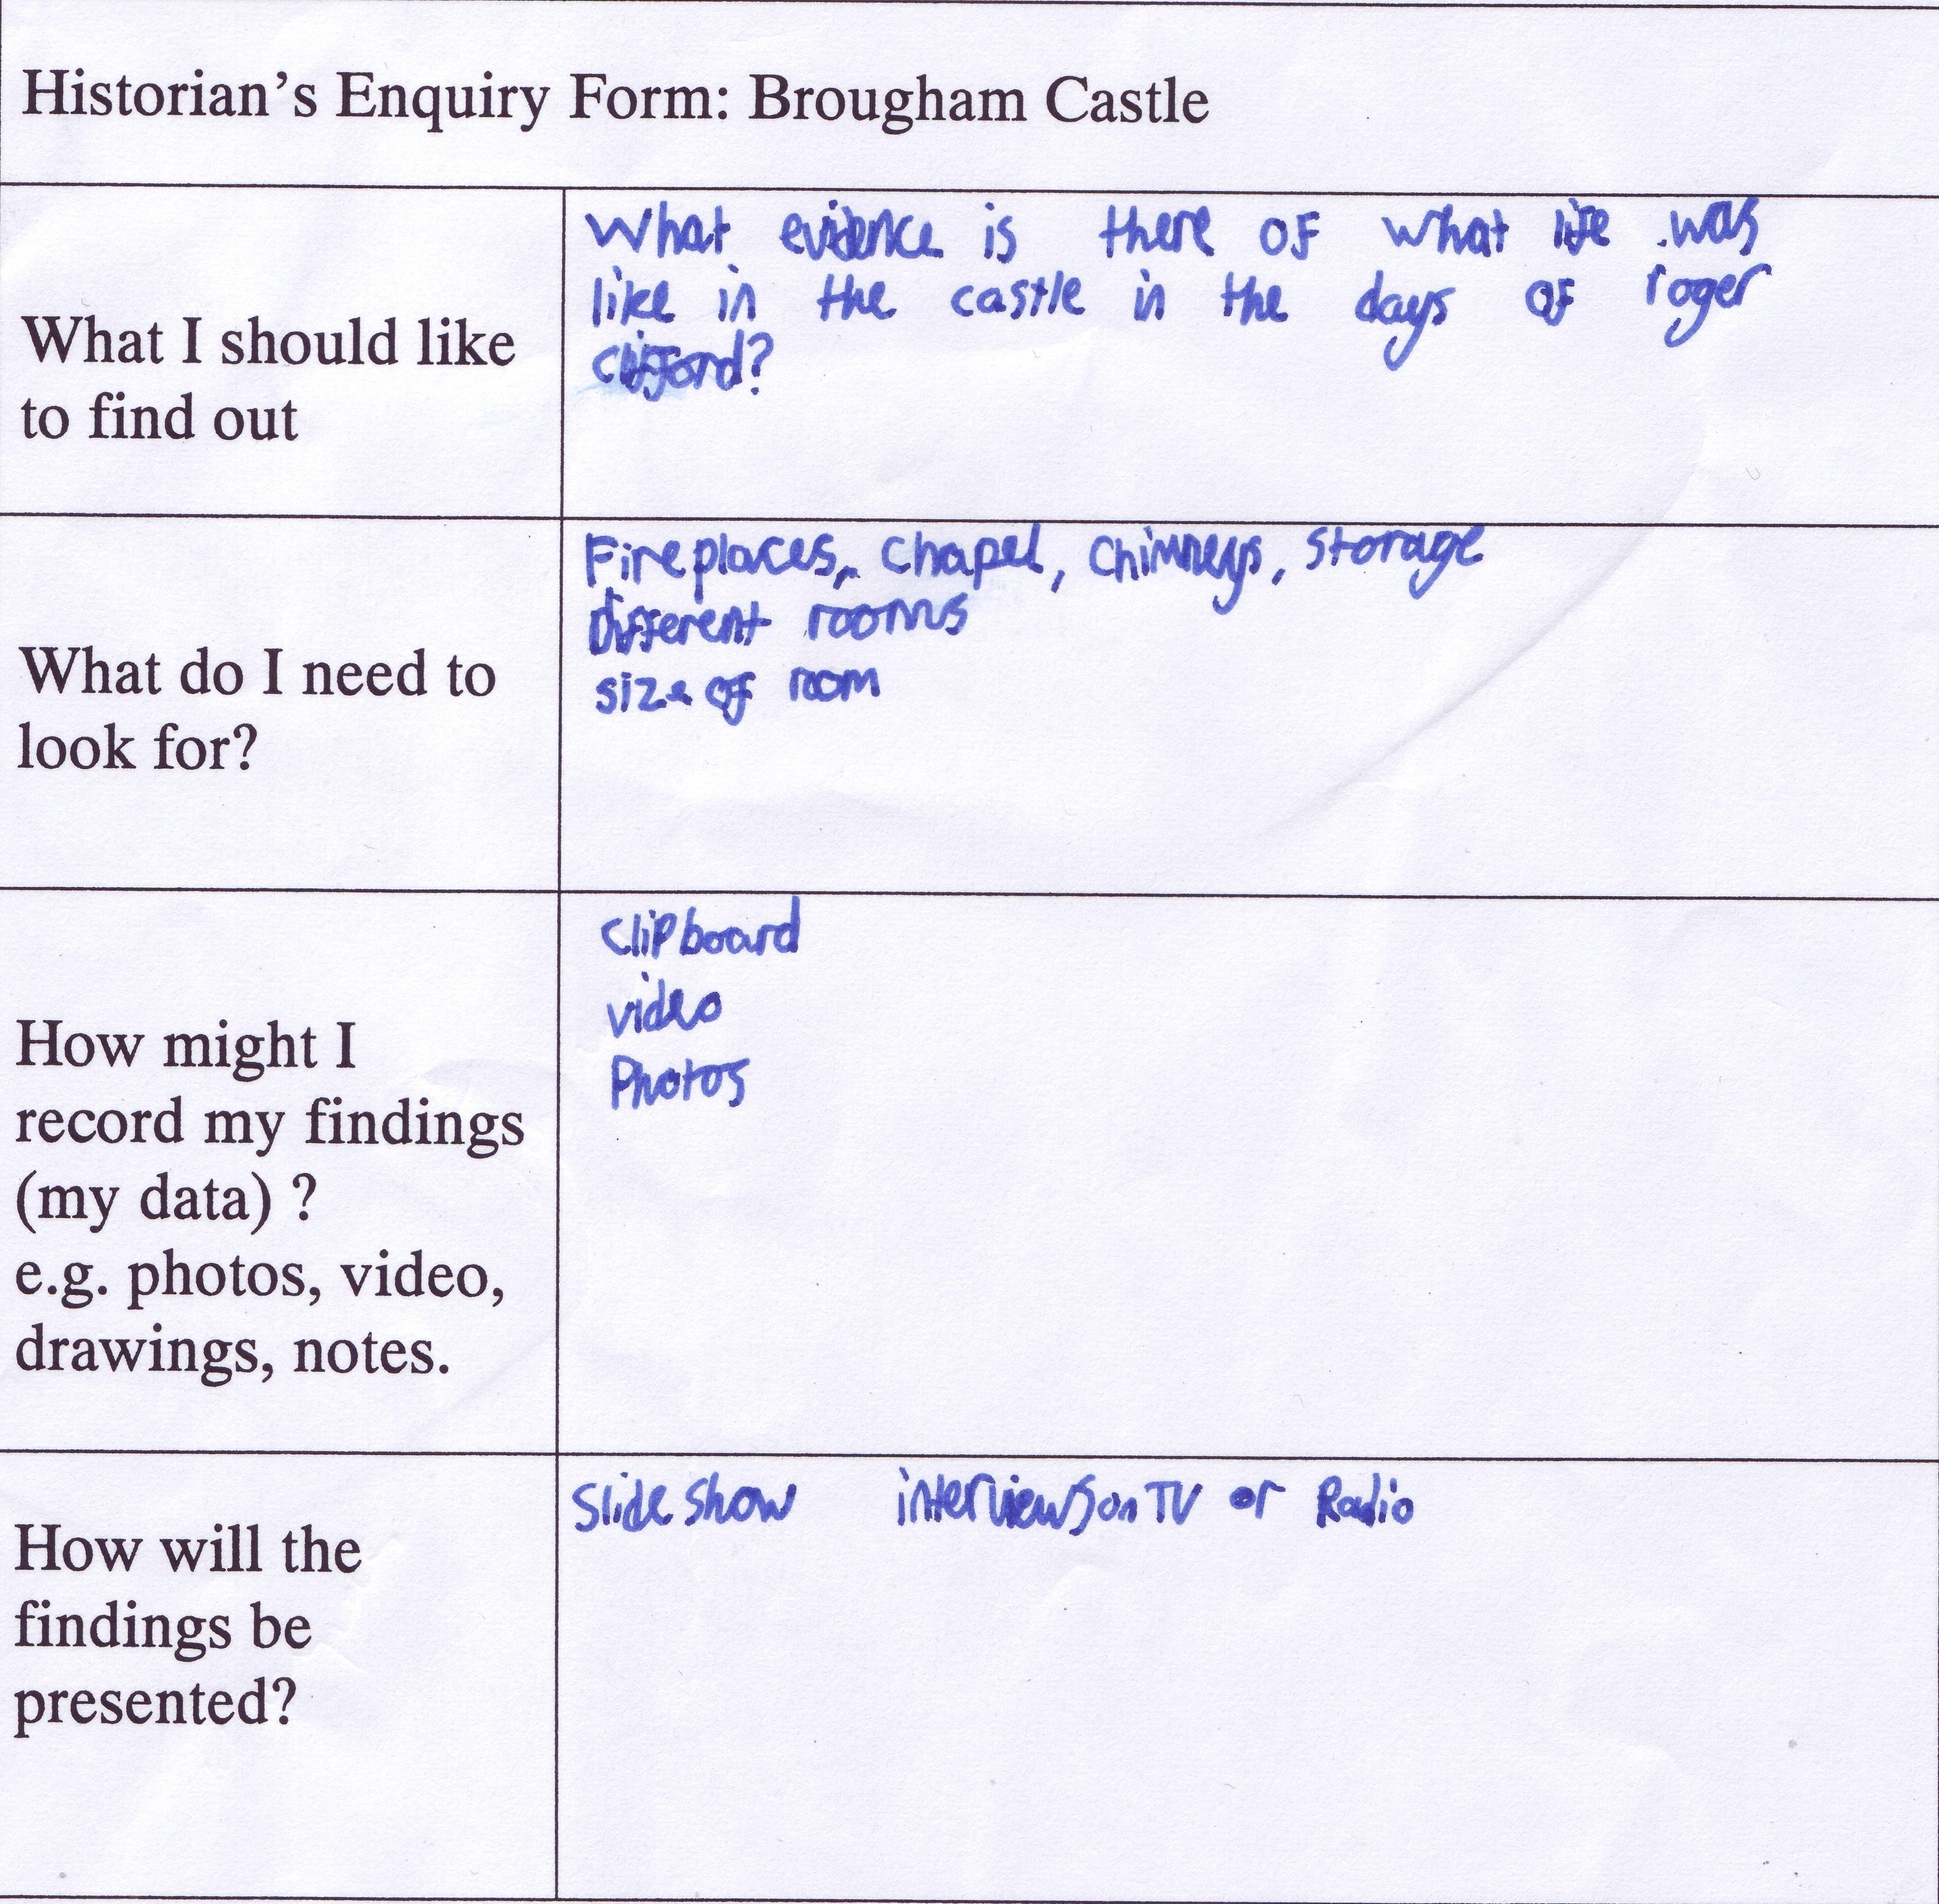 Historian's Enquiry Form: Brougham Castle
What I should like
to find out
What evidence is there of what life was
like in the castle in the days of roger
clifford?
What do I need to
look for?
Fireplaces, chapel, chimneys, storage
different rooms
size of room
How might I
record my findings
(my data) ?
e.g. photos, video,
drawings, notes.
clipboard
video
Photos
How will the
findings be
presented?
Slide show interviews on TV or Radio